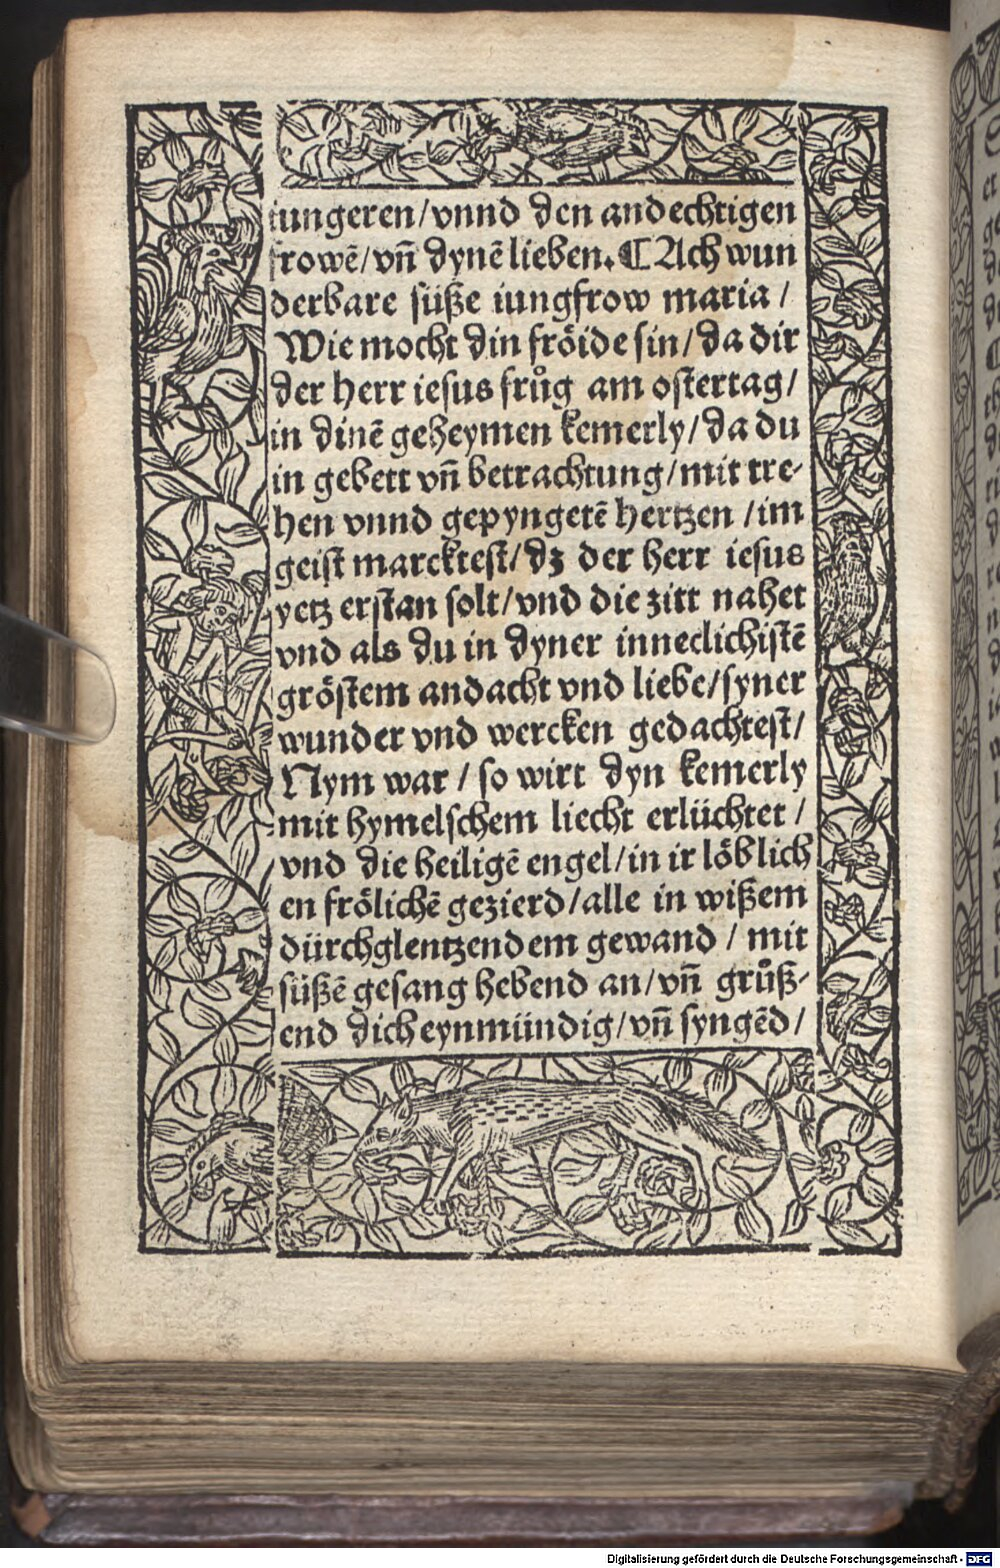 iungeren/vnnd den andechtigen
frowē/vn̄ dynē lieben. ¶ Ach wun
derbare süße iungfrow maria /
Wie mocht din fröide sin/da dir
der herr iesus frůg am ostertag/
in dinē geheymen kemerly/da du
in gebett vn̄ betrachtung/mit tre-
hen vnnd gepyngetē hertzen /im
geist marcktest/dz der herr iesus
yetz erstan solt/vnd die zitt nahet
vnd als du in dyner inneclichistē
gröstem andacht vnd liebe/syner
wunder vnd wercken gedachtest/
Nym war / so wirt dyn kemerly
mit hymelschem liecht erlüchtet /
vnd die heiligē engel/in ir löblich
en frölichē gezierd/alle in wißem
dürchglentzendem gewand / mit
süßē gesang hebend an/vn̄ grůß-
end dich eynmündig/vn̄ syngēd/
Digitalisierung gefördert durch die Deutsche Forschungsgemeinschaft - DFG